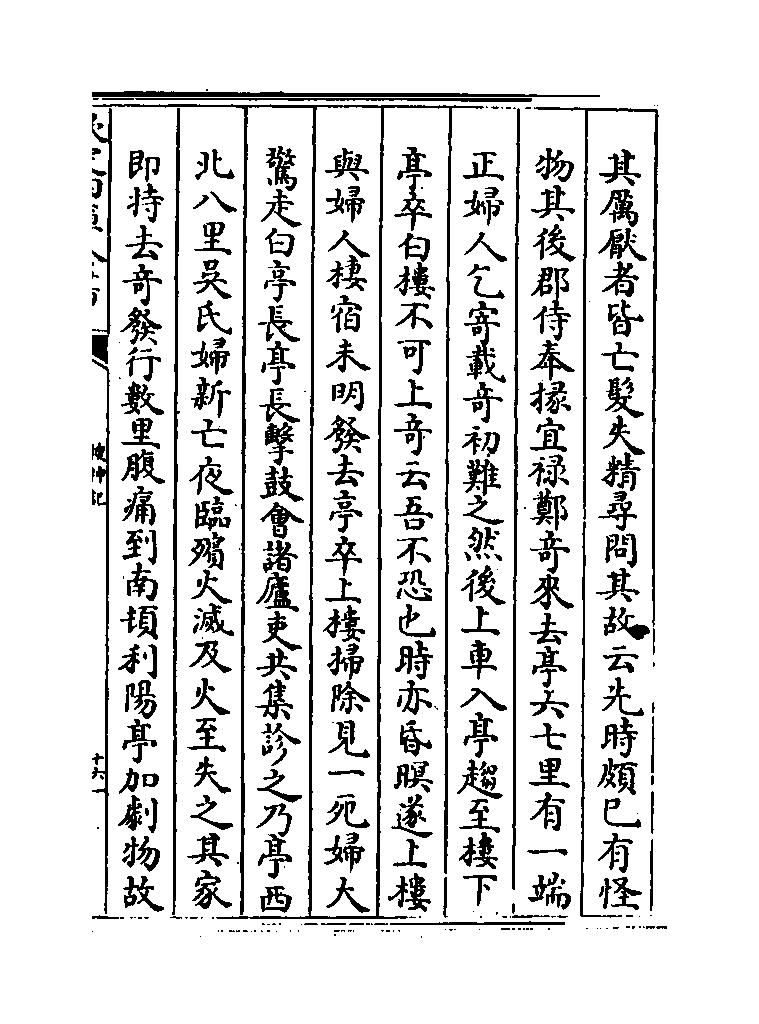 其厲厭者皆亡髮失精尋問其故云先時頗已有怪
物其後郡侍奉掾宜禄鄭竒來去亭六七里有一端
正婦人乞寄載竒初難之然後上車入亭趨至樓下
亭卒白樓不可上竒云吾不恐也時亦昏暝遂上樓
與婦人棲宿未明發去亭卒上樓掃除見一死婦大
驚走白亭長亭長擊鼓會諸廬吏共集診之乃亭西
北八里吳氏婦新亡夜臨殯火滅及火至失之其家
即持去竒發行數里腹痛到南頓利陽亭加劇物故
搜神記